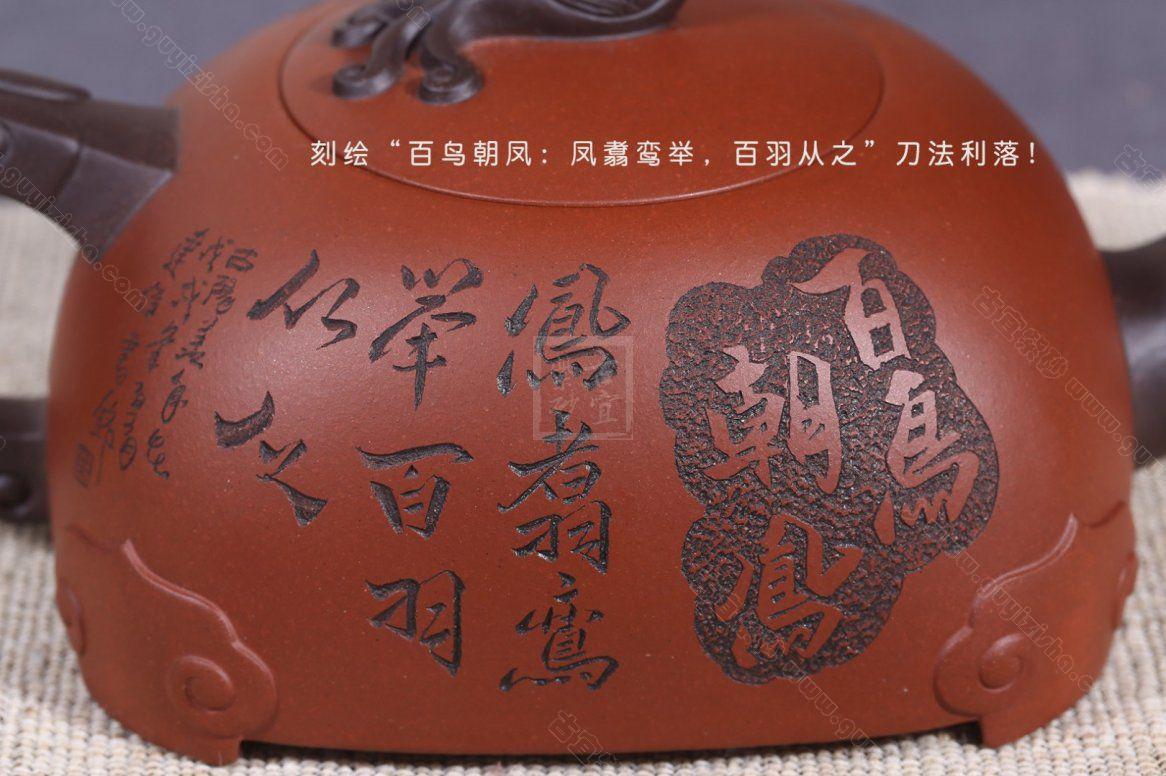 刻绘“百鸟朝凤：凤翥鸾举，百羽从之”刀法利落！
百鳥
朝鳳
鳳翥鸞
举百羽
从之
古宜紫砂 www.guyizisha.com